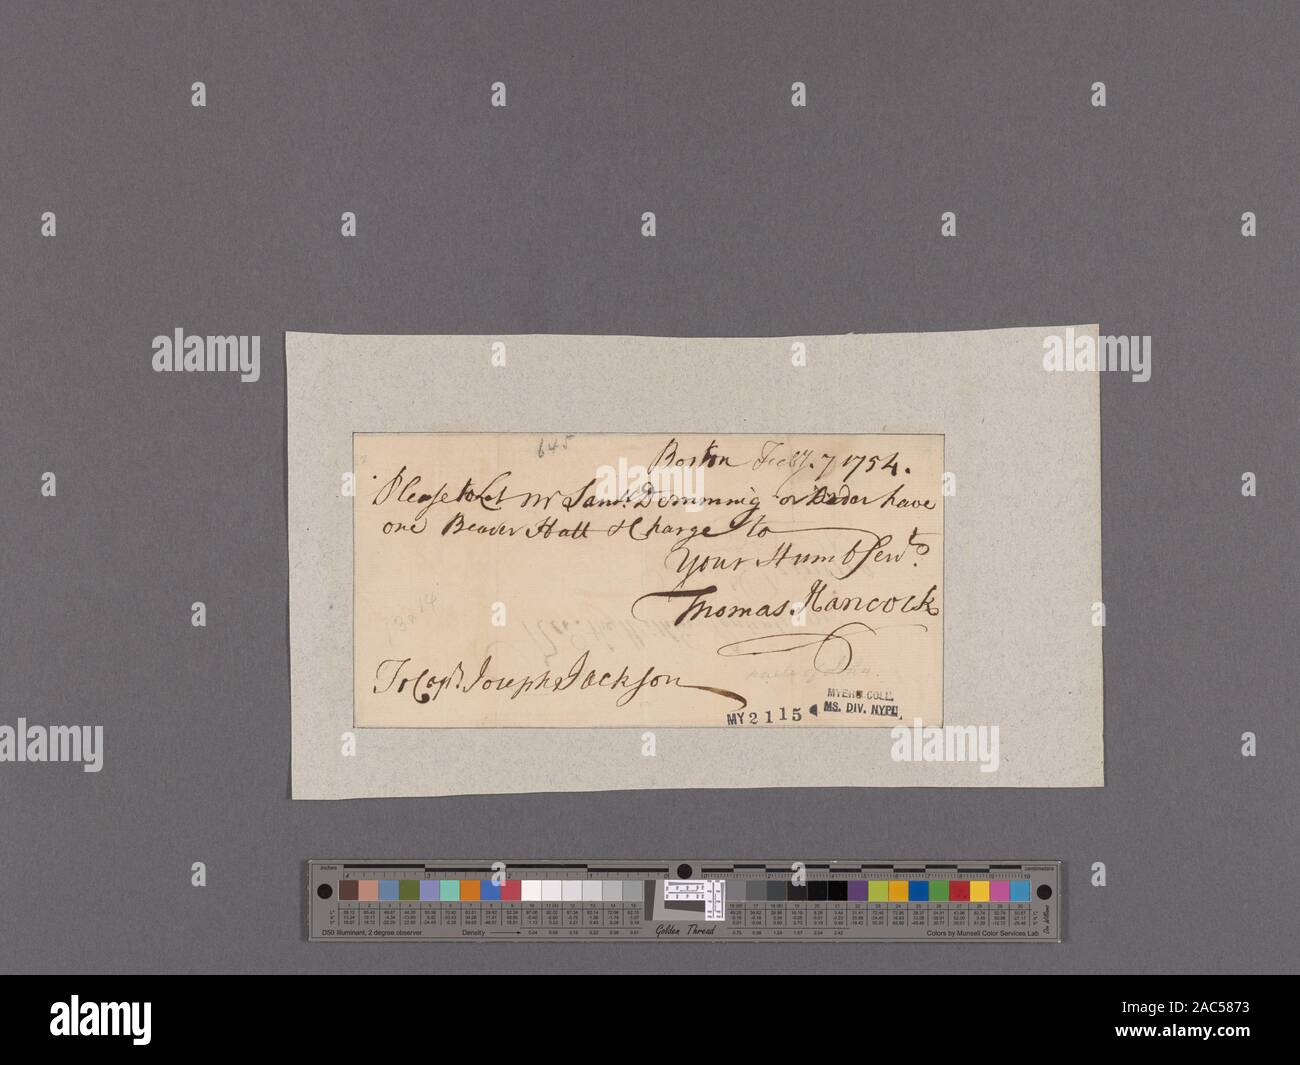 645
Boston Feby. 7 1754.
Please to Let Mr Saml. Demming or Order have
one Beaver Hatt & Charge to
Your Humb Servt.
Thomas Hancock
To Capt. Joseph Jackson
MY 2115
MYERS COLL.
MS. DIV. NYPL
inches
centimetres
D50 Illuminant, 2 degree observer
Density
Golden Thread
Colors by Munsell Color Services Lab
a alamy
alamy
Image ID: 2AC5873
www.alamy.com